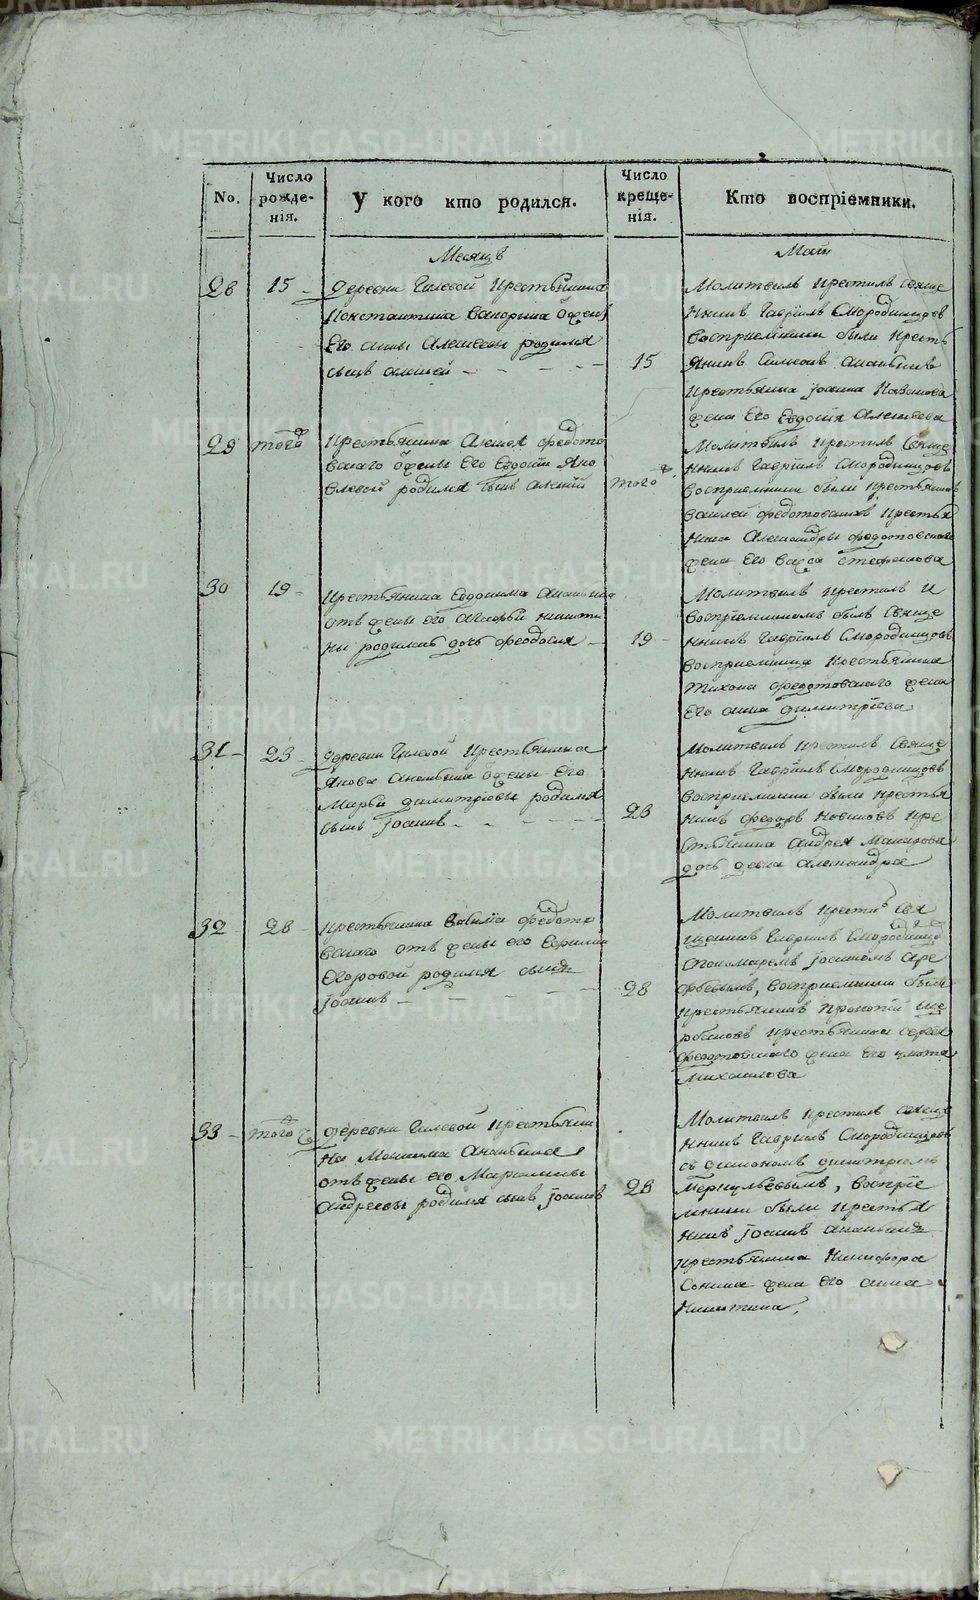 No.
Число рожде-нія.
У кого кто родился.
Число креще-нія.
Кто воспріемники.
Месяцъ
Маій
28
15
деревни Гилевой крестьянина
Константина
Его анны Алексеевы родился
сынъ алексей
15
Молитвилъ крестилъ свяще
нникъ Гавріилъ Смородинцовъ
восприемники были кресть
янинъ Симеонъ Ананьинъ
крестьянина іоанна Казанова
жена Его Евдокія Алексеева
29
того
крестьянина Алексея федото
вскаго жены Его Евдокіи Яко
влевой родился сынъ алексій
того
Молитвилъ крестилъ Свяще
нникъ Гавріилъ Смородинцовъ
восприемники были крестьянинъ
василей федотовскихъ крестья
нина Александры федотовскаго
жена Его васса стефанова
30
19
крестьянина Евдокима Ананьина
отъ жены его агафьи никити
ны родилась дочь феодосия
19
Молитвилъ крестилъ и
воспріемникомъ былъ Свяще
нникъ Гавріилъ Смородинцовъ
восприемница крестьянина
тихона федотовскаго жена
Его анна димитріева
31
23
деревни Гилевой крестьянина
Якова Ананьина жены Его
Марьи димитріевы родился
сынъ іоаннъ
23
Молитвилъ крестилъ Свяще
нникъ Гавріилъ Смородинцовъ
восприемники были крестья
нинъ федоръ Новиковъ кре
стьянина Андрея Макарова
дочь девка александра
32
28
крестьянина Василія федото
вскаго отъ жены его Евфиміи
Егоровой родился сынъ
іоаннъ
28
Молитвилъ крестилъ Свя
щенникъ Гавріилъ Смородинцовъ
спономаремъ іоанномъ Аре
фьевымъ, восприемники были
крестьянинъ прокопій
крестьянина сергея
федотовскаго жена его
Михаилова
33
того
деревни Гилевой крестьяни
на Максима Ананьина
отъ жены его Марианны
андреевы родился сынъ іоаннъ
28
Молитвилъ крестилъ свяще
нникъ Гавріилъ Смородинцовъ
съ диакономъ димитріемъ
Меркурьевымъ, воспріе
мники были крестья
нинъ іоаннъ ананьинъ
крестьянина Никифора
Сонина жена его анна
Никитина.
METRIKI.GASO-URAL.RU